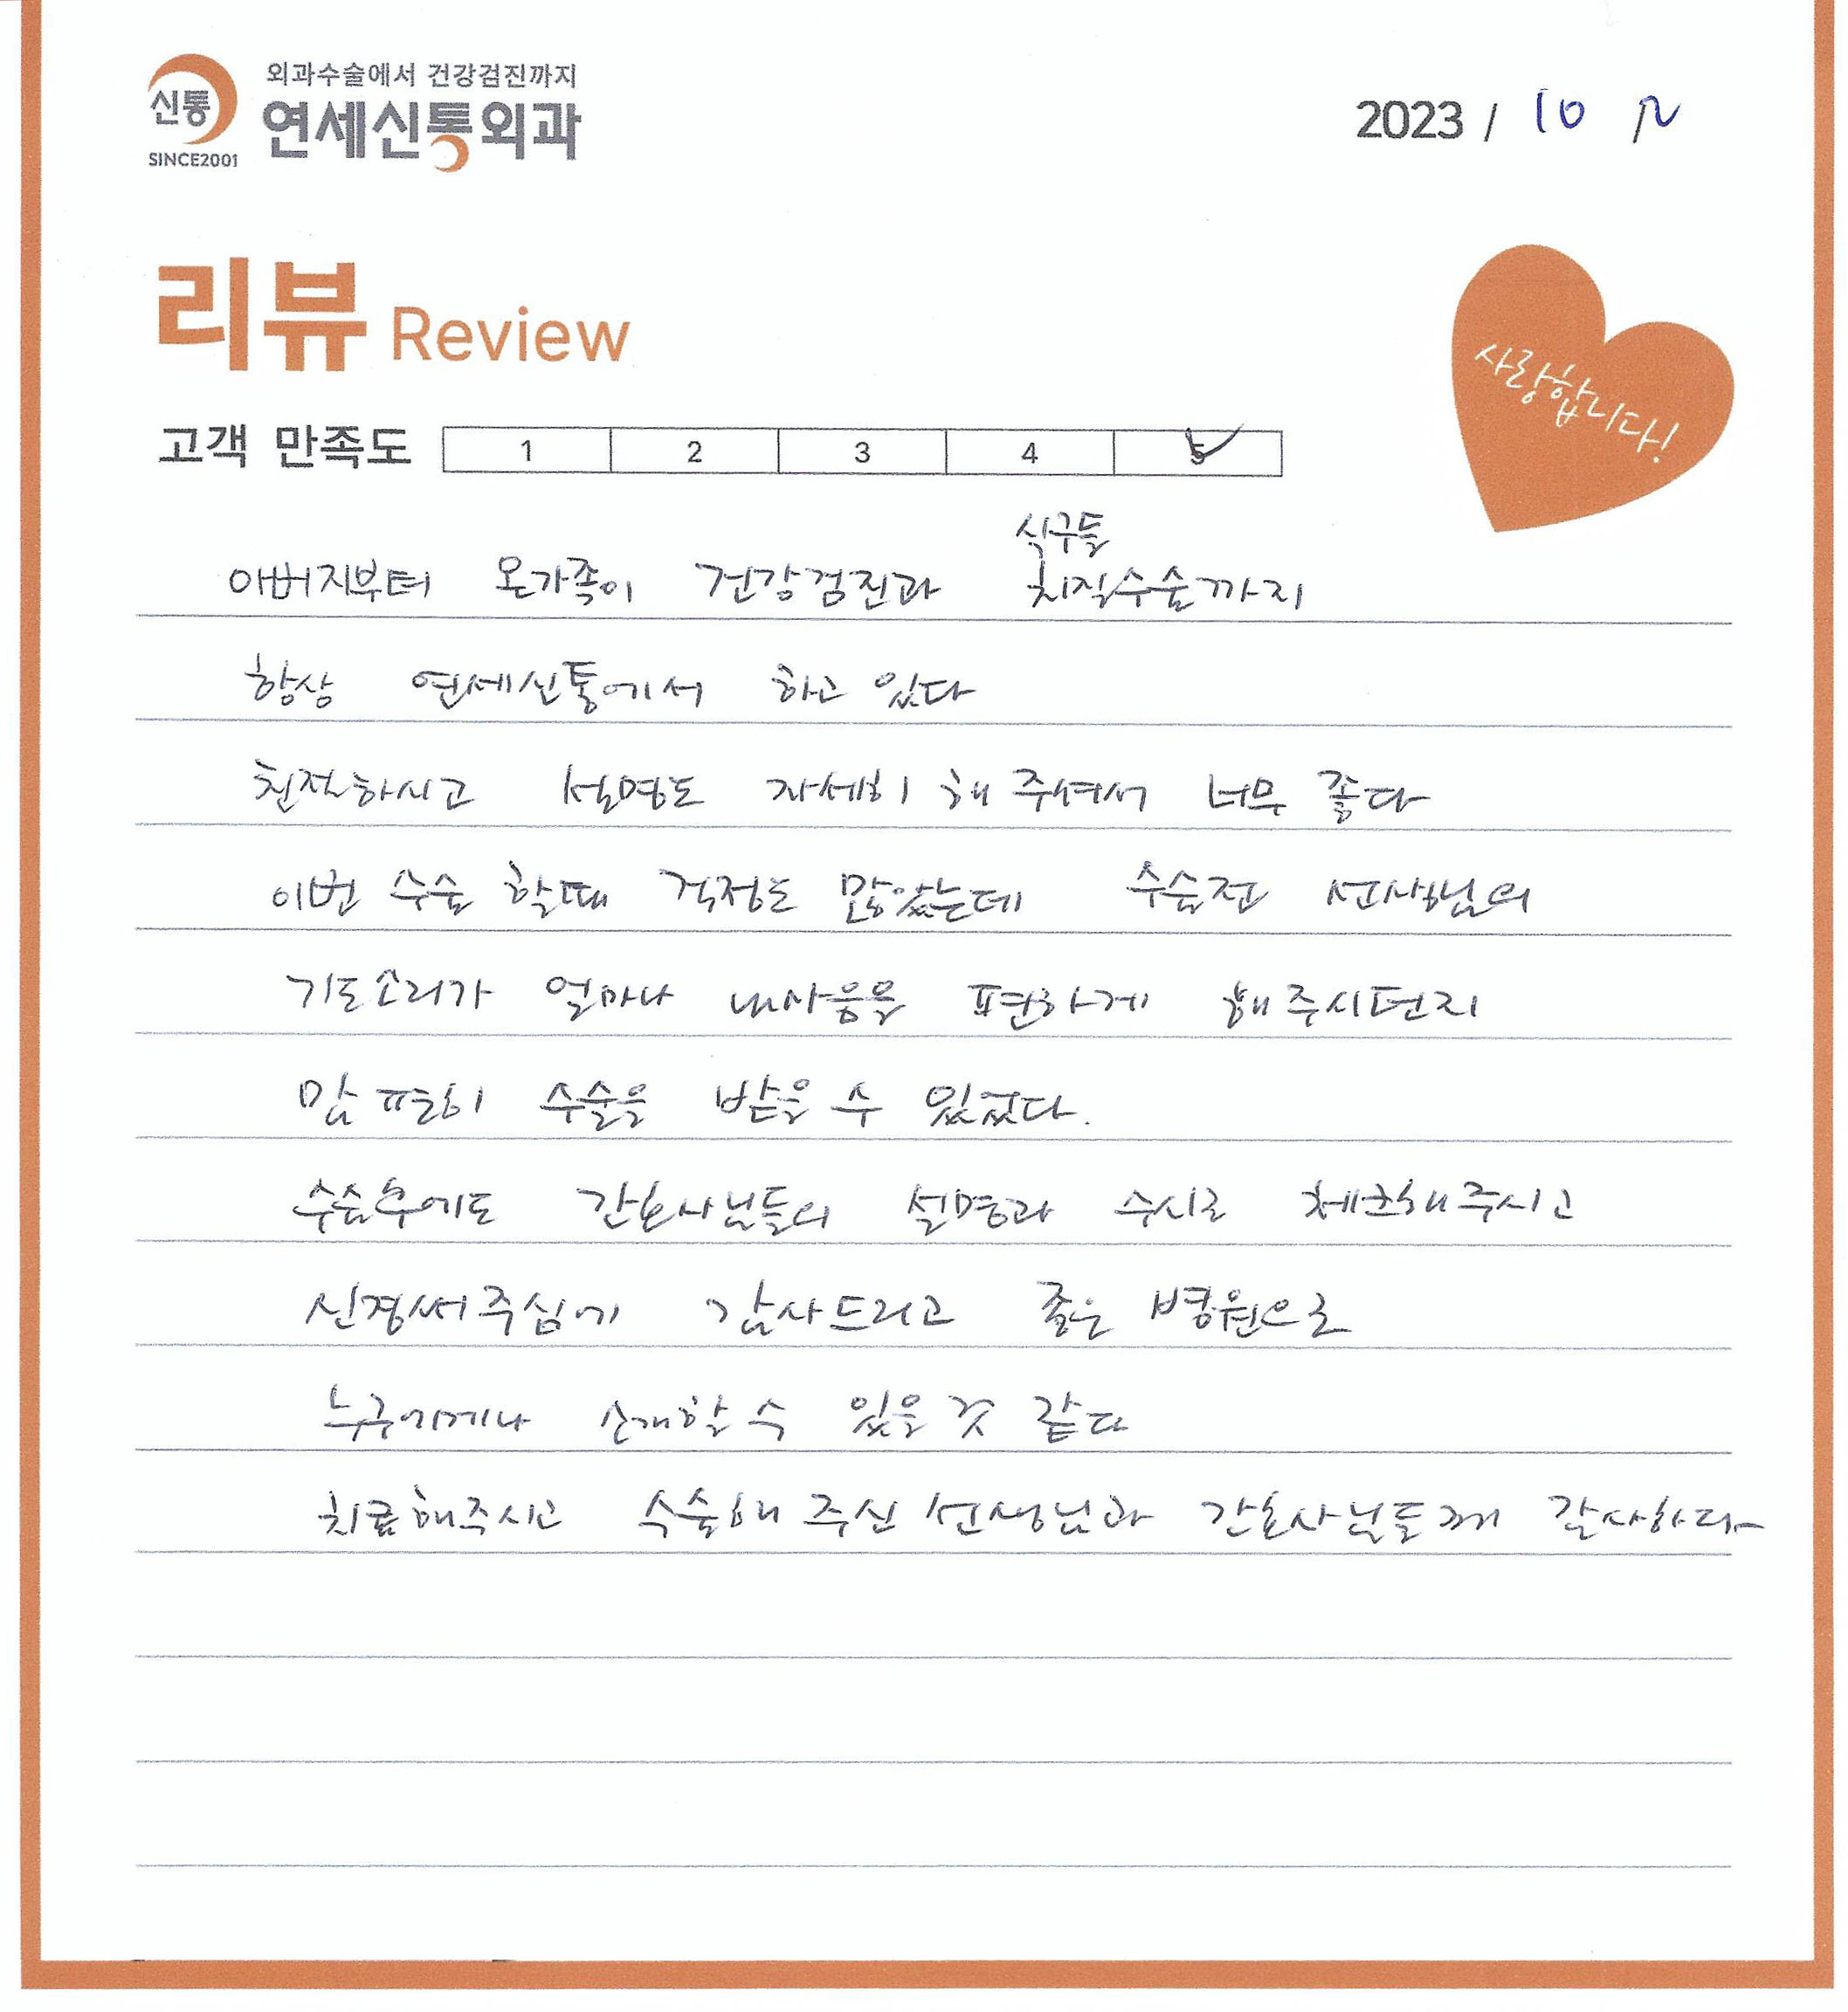 신통
SINCE2001
외과수술에서 건강검진까지
연세신통외과
2023 / 10
리뷰 Review
사랑합니다!
고객 만족도 1 2 3 4 5
식구들
아버지부터 온가족이 건강검진과 치질수술까지
항상 연세신통에서 하고 있다
친절하시고 설명도 자세히 해 주셔서 너무 좋다
이번 수술 할때 걱정도 많았는데 수술전 선생님의
기도소리가 얼마나 내마음을 편하게 해주시던지
맘 편히 수술을 받을 수 있었다.
수술후에도 간호사님들의 설명과 수시로 체크해주시고
신경써주심에 감사드리고 좋은 병원으로
누구에게나 소개할 수 있을 것 같다
치료해주시고 수술해 주신 선생님과 간호사님들께 감사하다